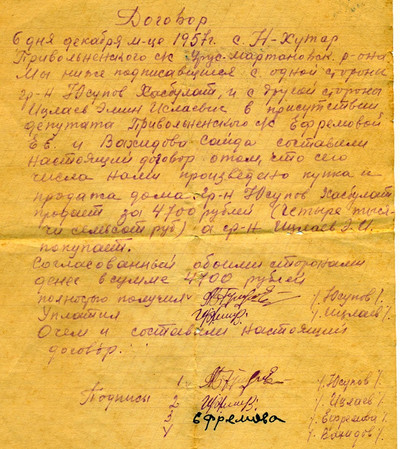 Договор
6 дня декабря м-це 1957г. с. Н-Хутар
Привольненского с/с Урус-Мартановск. р-она
Мы ниже подписавшиеся с одной стороны
гр-н Юсупов Хасбулат и с другой стороны
Ицлаев Элин Ислаевис в присутствии
депутата Привольненского с/с Ефремовой
Е.Е. и Вахидова Саида составили
настоящий договор отом, что сего
числа нами произведено купка и
продажа дома. Гр-н Юсупов Хасбулат
продает за 4700 рублей (четыре тыся-
чи семьсот руб) а гр-н Ицлаев Э.И.
покупает.
Согласованный обоими сторонами
цены всумме 4700 рублей
полностью получил /Юсупов/.
Уплатил /Ицлаев/.
Очем и составили настоящий
договор.
1. /Юсупов/
Подписы 2 /Ицлаев/
3 Ефремова /Ефремова/
4 /Вахидов/